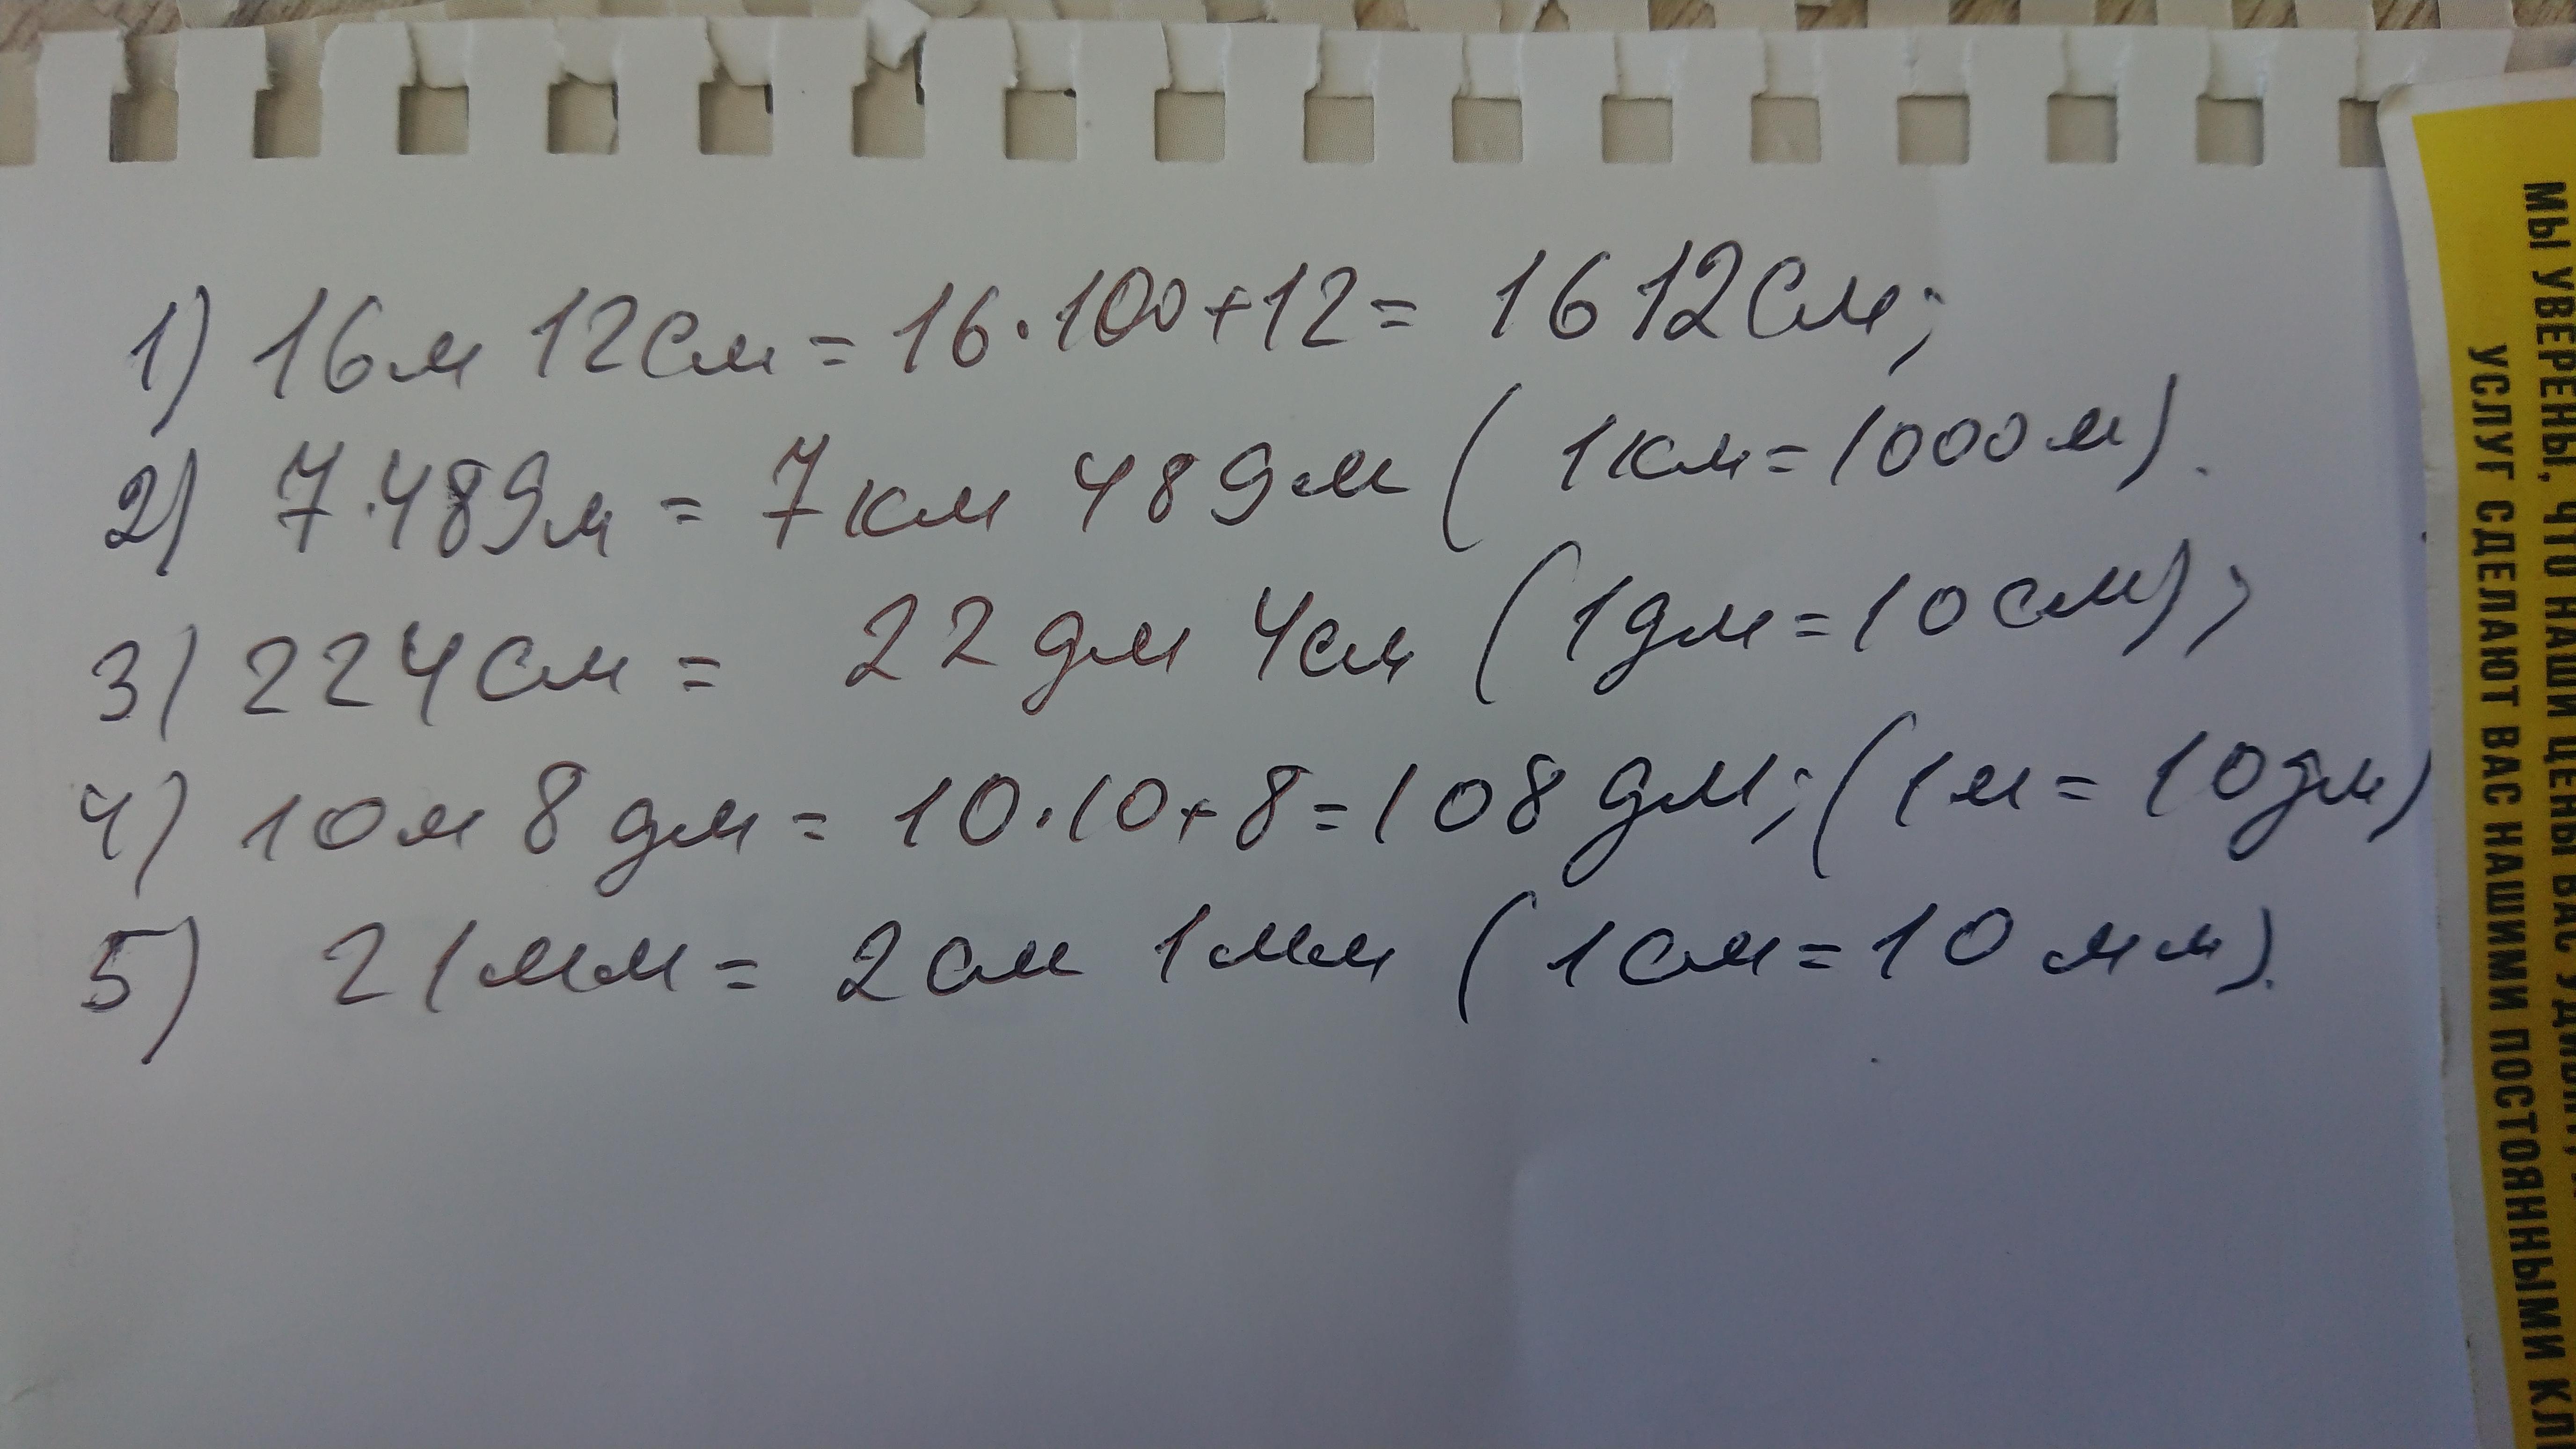 1) 16м 12см = 16·100+12 = 1612см;
2) 7.489м = 7км 489м (1км=1000м).
3) 224см = 22дм 4см (1дм=10см);
4) 10м 8дм = 10·10+8=108дм; (1м=10дм)
5) 21мм = 2см 1мм (1см=10мм).
МЫ УВЕРЕНЫ, ЧТО НАШИ ЦЕНЫ ВАС
УСЛУГ СДЕЛАЮТ ВАС НАШИМИ ПОСТОЯННЫМИ КЛ